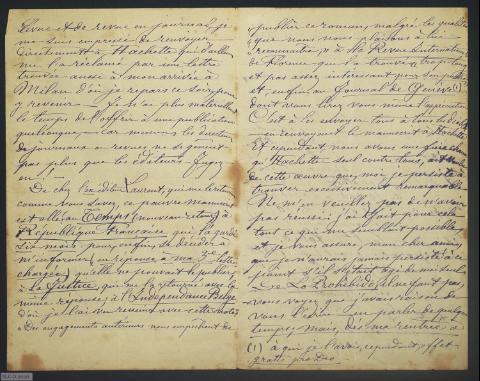 Revue et de revue en journal, je
me suis empressé de renvoyer
directement à Hachette qui d'ailleurs
me l'a réclamé par une lettre
trouvée aussi à mon arrivée à
Milan d'où je repars ce soir pour
y revenir — Je n'ai plus matériellement
le temps de l'offrir à une publication
quelconque, — car mesurer les directeurs
de journaux ou revues, ne se gênent
pas plus que les éditeurs. Jugez
en !
De chez l'inédit Laurent, qui me l'a
comme vous savez, ce pauvre manuscrit
est allé au Temps (nouveau retour) à
République française qui l'a gardé
six mois pour enfin se décider à
m'informer (en réponse à ma 3e lettre
chargée) qu'elle ne pouvait le publier,
à La Justice, qui me l'a retourné avec la
même réponse, à l'Indépendance Belge
d'où je l'ai vu revenir avec cette note
« Des engagements antérieurs nous empêchent de
publier ce roman, malgré les qualités
que nous nous plaisons à lui
reconnaître, » à La Revue Internationale
de Rome qui l'a trouvé trop long
et pas assez intéressant pour son public
et, enfin, au Journal de Genève (1)
dont vous lirez vous même l'appréciation
C'est à les envoyer tous à tous les diables
en renvoyant le manuscrit à Hachette.
Et cependant, nous avons une fière chance
qu'Hachette seul contre tous, ait
de cette œuvre que, moi, je persiste à
trouver excessivement remarquable.
Ne m'en veuillez pas de n'avoir
pas réussi, j'ai fait pour cela
tout ce qui me semblait possible
et, je vous assure, mon cher ami,
que je n'aurais jamais persisté à ce
point s'il s'était agi de moi seul
De La Prohibida, il ne faut pas,
vous voyez que j'avais raison de
vous le dire, en parler de quelque
temps, mais, dès ma rentrée à
(1) à qui je l'avais, cependant, offert
gratis pro Deo.